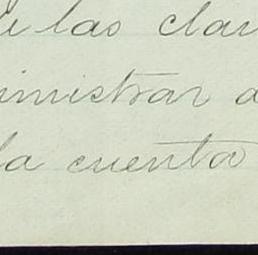 de las clar
inistrar a
la cuenta